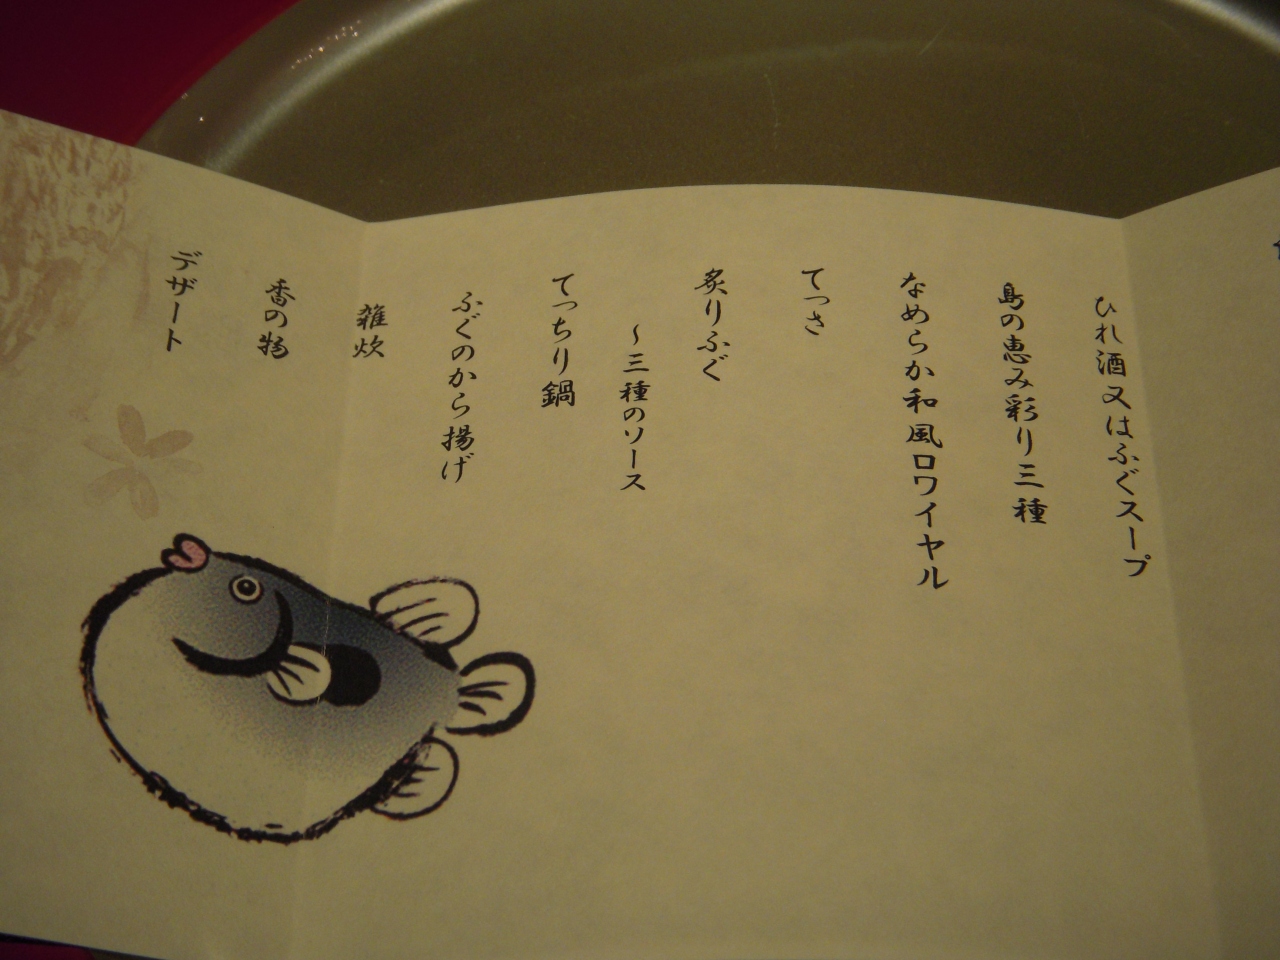 ひれ酒又はふぐスープ
島の恵み彩り三種
なめらか和風ロワイヤル
てっさ
炙りふぐ
～三種のソース
てっちり鍋
ふぐのから揚げ
雑炊
香の物
デザート